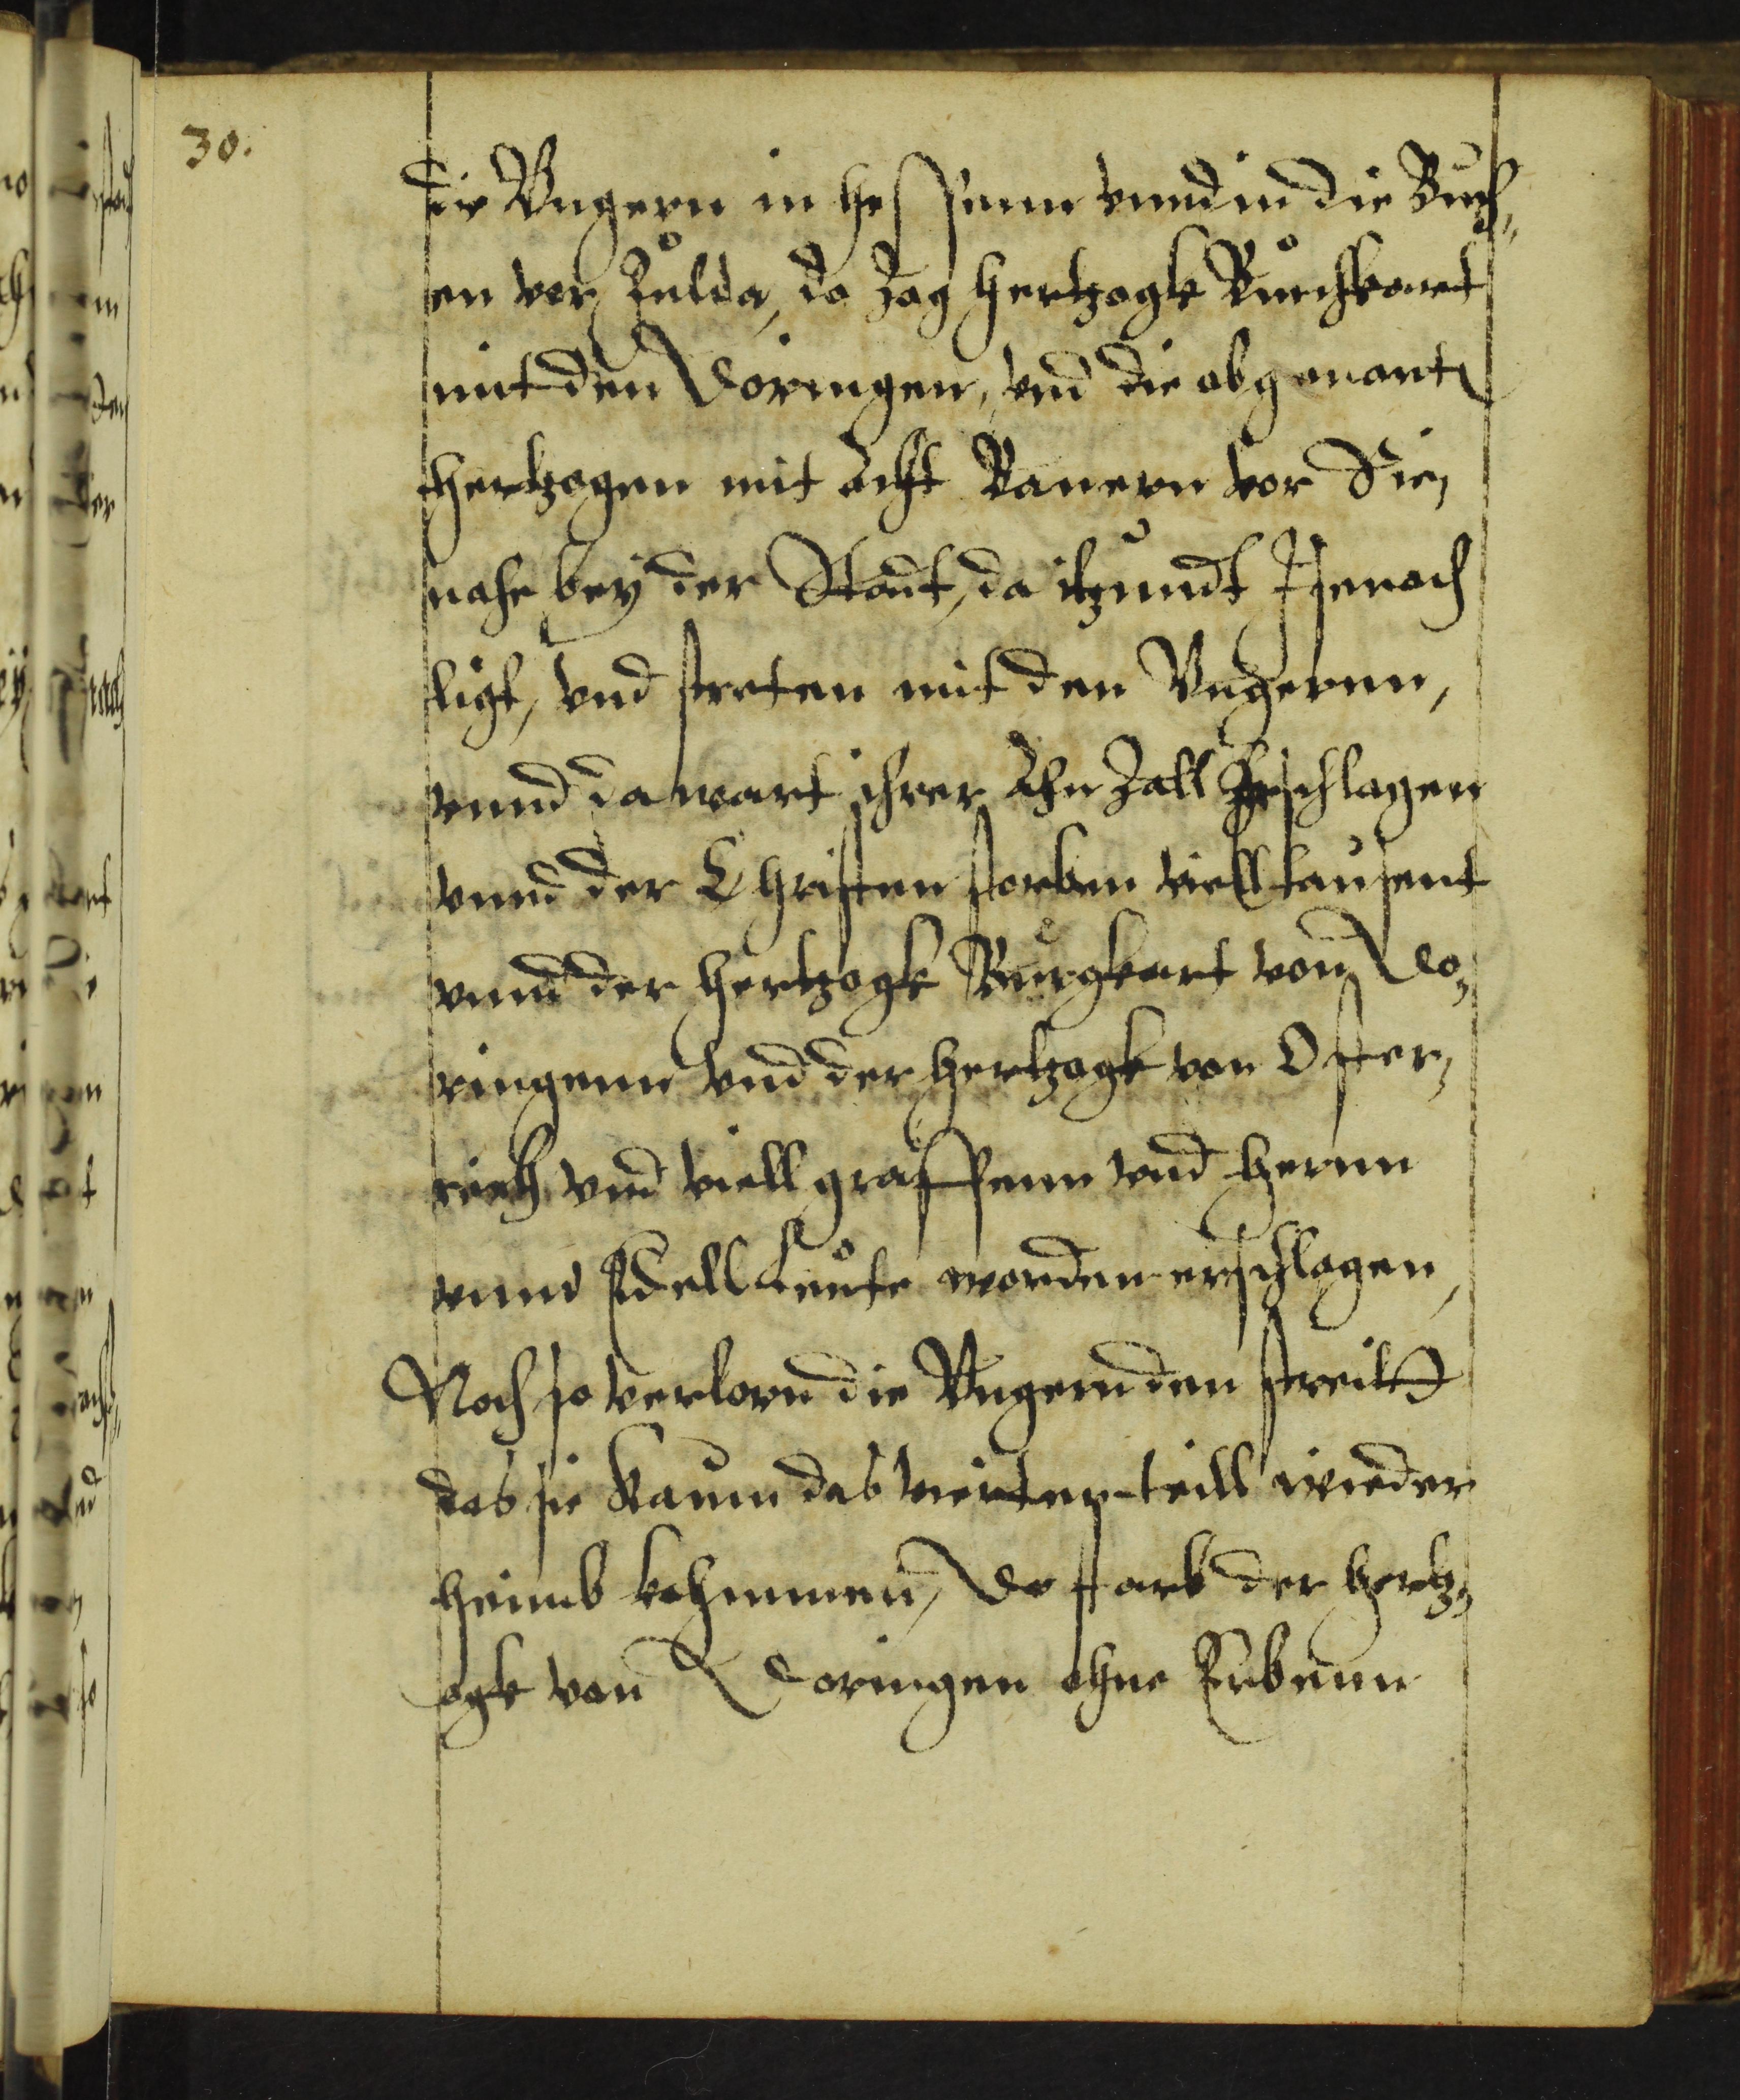 30.
die Vngern in Hessenn vnnd in die Buch¬
en vor Fulda, do zog Hertzogk Burchkart
mit den Doringen, vnd die obgenant
Hertzogen mit acht Banern vor Sie,
nahe bey der Stadt, da itzundt Isenach
ligt, vnd streten mit den Vngernn,
vnnd da wart ihrer ahn Zall geschlagen
vnnd der Christen storben viell tausent
vnnd der Hertzogk Burgkart von Do¬
ringenn vnd der Hertzogk von Oster¬
reich vnd viell graffenn vnd Hernn
vnnd Edell Leute worden erschlagen,
Noch so verlorn die Vngern den streitt
das sie kaum das vierten teill wieder
heimb kohmmen, Do starb der Hertz¬
ogk von Doringen ohne Erbenn